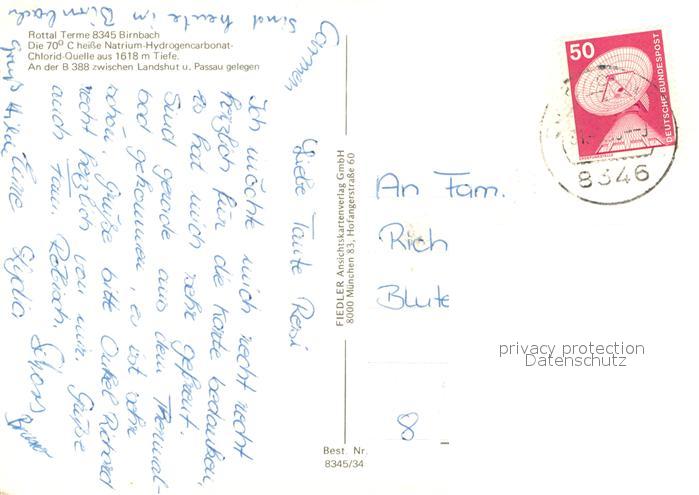 Rottal Terme 8345 Birnbach
Die 70° C heiße Natrium-Hydrogencarbonat-
Chlorid-Quelle aus 1618 m Tiefe.
An der B 388 zwischen Landshut u. Passau gelegen
Sind heute in Birnbach
Carmen
Liebe Tante Resi
Ich möchte mich recht recht
herzlich für die Karte bedanken,
es hat mich sehr gefreut.
Sind gerade aus dem Thermal-
bad gekommen, es ist sehr
schön. Grüße bitte Onkel Richard
recht herzlich von mir. Grüße
auch Fam.
Eure Lydia
Gruß Hilde
FIEDLER Ansichtskartenverlag GmbH
8000 München 83, Hofangerstraße 60
Best. Nr.
8345/34
50
DEUTSCHE BUNDESPOST
8346
An Fam.
Rich
Blute
8
privacy protection
Datenschutz